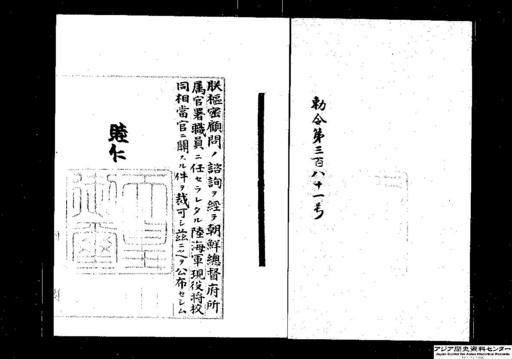 勅令第三百八十一号
朕樞密顧問ノ諮詢ヲ經テ朝鮮總督府所
屬官署職員ニ任セラレタル陸海軍現役將校
同相當官ニ關スル件ヲ裁可シ茲ニ之ヲ公布セシム
睦仁
天皇
御璽
アジア歴史資料センター
Japan Center for Asian Historical Records